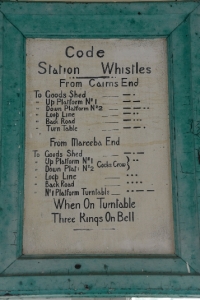 Code
Station Whistles
From Cairns End
To Goods Shed
" Up Platform Nº1
" Down Platform Nº2
" Loop Line
" Back Road
" Turn Table
From Mareeba End
To Goods Shed
" Up Platform Nº1
" Down Platf Nº2 Cocks Crow
" Loop Line
" Back Road
" Nº1 Platform Turntable
When On Turntable
Three Rings On Bell